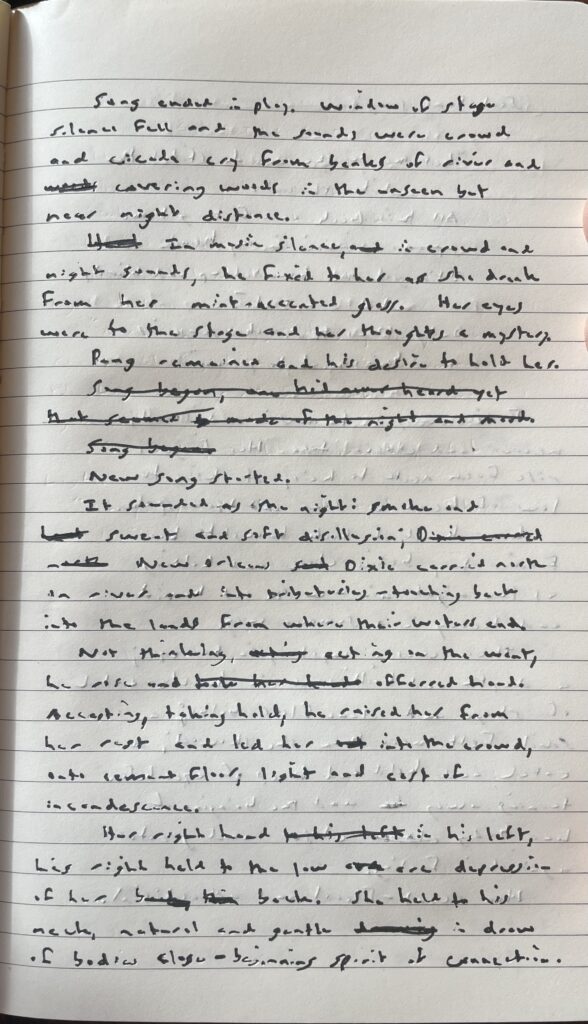 Song ended in play. Window of stage
silence fell and the sounds were crowd
and cicada cry from beaks of river and
covering woods in the unseen but
near night distance.
In music silence, in crowd and
night sounds, he fixed to her as she drank
from her mint-accented glass. Her eyes
were to the stage and her thoughts a mystery.
Pang remained and his desire to hold her.
Song began, one he'd never heard yet
that seemed made of the night and mood.
Song began
New song started.
It sounded as the night: smoke and
sweat and soft disillusion; Dixie carried
north New Orleans Dixie carried north
on rivers and into tributaries - touching back
into the lands from where their waters end.
Not thinking, acting on the want,
he rose and took her hand offerred hand.
Accepting, taking hold, he raised her from
her rest and led her into the crowd,
onto cement floor, light and cast of
incandescence.
Her right hand to his left in his left,
his right held to the low depression
of her back. She held to his
neck, natural and gentle in draw
of bodies close - beginning spirit of connection.